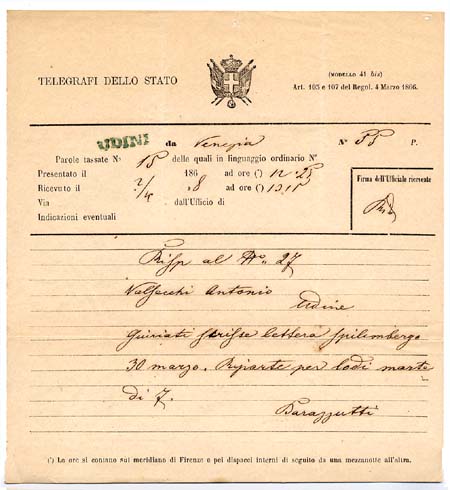 TELEGRAFI DELLO STATO
(MODELLO 41 bis)
Art. 105 e 107 del Regol. 4 Marzo 1866.
UDINE da Venezia N° 55 P.
Parole tassate N° 15 delle quali in linguaggio ordinario N°
Presentato il 186 ad ore (¹) 12.25
Ricevuto il 2/4 8 ad ore (¹) 13.15
Via dall'Ufficio di
Indicazioni eventuali
Firma dell'Ufficiale ricevente
Risp al N° 27
Valsecchi Antonio
Udine
Giuriati scrisse lettera Spilimbergo
30 marzo. Riparte per Lodi marte
di 7.
Barazzutti
(¹) Le ore si contano sul meridiano di Firenze e pei dispacci interni di seguito da una mezzanotte all'altra.